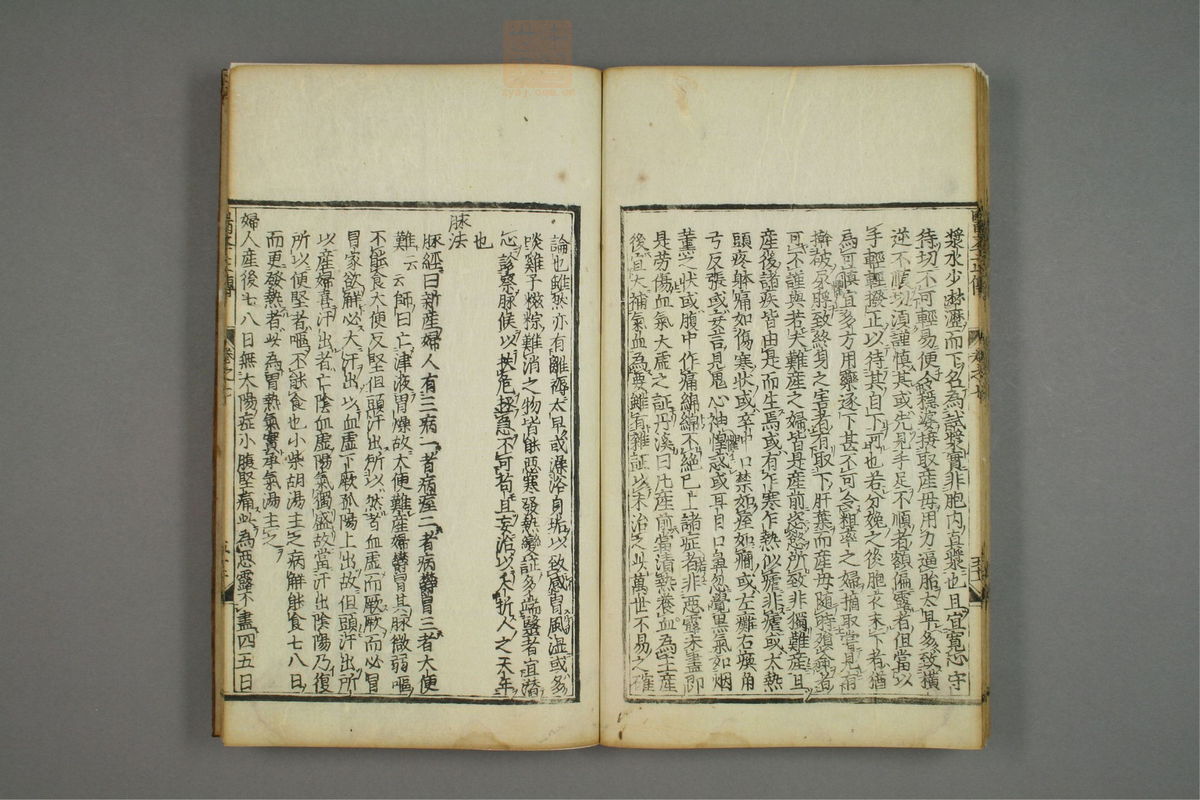 漿水少許瀝而下名為試漿實非胞內真漿也且宜寬心守
待切不可輕易便令穩婆接取產母用力逼胎太早多致橫
逆不順切須謹慎其或先見手足不順者額偏露者但當以
手輕輕撥正以待其自下可也若分娩之後胞衣未下者猶
為可慎宜多方用藥逐下甚不可令粗率之婦摘取嘗見有
擀破尿脬致終身之害者有取下肝葉而產母隨時殞命者
可不謹與若夫難產之婦皆是產前恣慾所致非獨難產且
產後諸疾皆由是而生焉或有乍寒乍熱似瘧非瘧或大熱
頭疼體痛如傷寒狀或卒中口禁如痓如癇或左癱右瘓角
弓反張或妄言見鬼心神惶惑或耳目口鼻忽覺黑氣如烟
薰之狀或腹中作痛綿綿不絕已上諸症者非惡露未盡即
是勞傷血氣大虛之証丹溪曰凡產前當清熱養血為主產
後宜大補氣血為要雖有雜証以末治之此萬世不易之確
論也雖然亦有離褥太早或澡浴身垢以致感冒風濕或多
啖雞子糍粽難消之物皆能惡寒發熱變証多端醫者宜潛
心診察脉候以扶危拯急不可苟且妄治以夭折人之天年
也
脉法
脉經曰新產婦人有三病一者病痓二者病鬱冒三者大便
難云云師曰亡津液胃燥故大便難產婦鬱冒其脉微弱嘔
不能食大便反堅但頭汗出所以然者血虛而厥厥而必冒
冒家欲解必大汗出以血虛下厥孤陽上出故但頭汗出所
以產婦喜汗出者亡陰血虛陽氣獨盛故當汗出陰陽乃復
所以便堅者嘔不能食也小柴胡湯主之病解能食七八日
而更發熱者此為胃熱氣實承氣湯主之
婦人產後七八日無太陽症小腹堅痛此為惡露不盡四五日